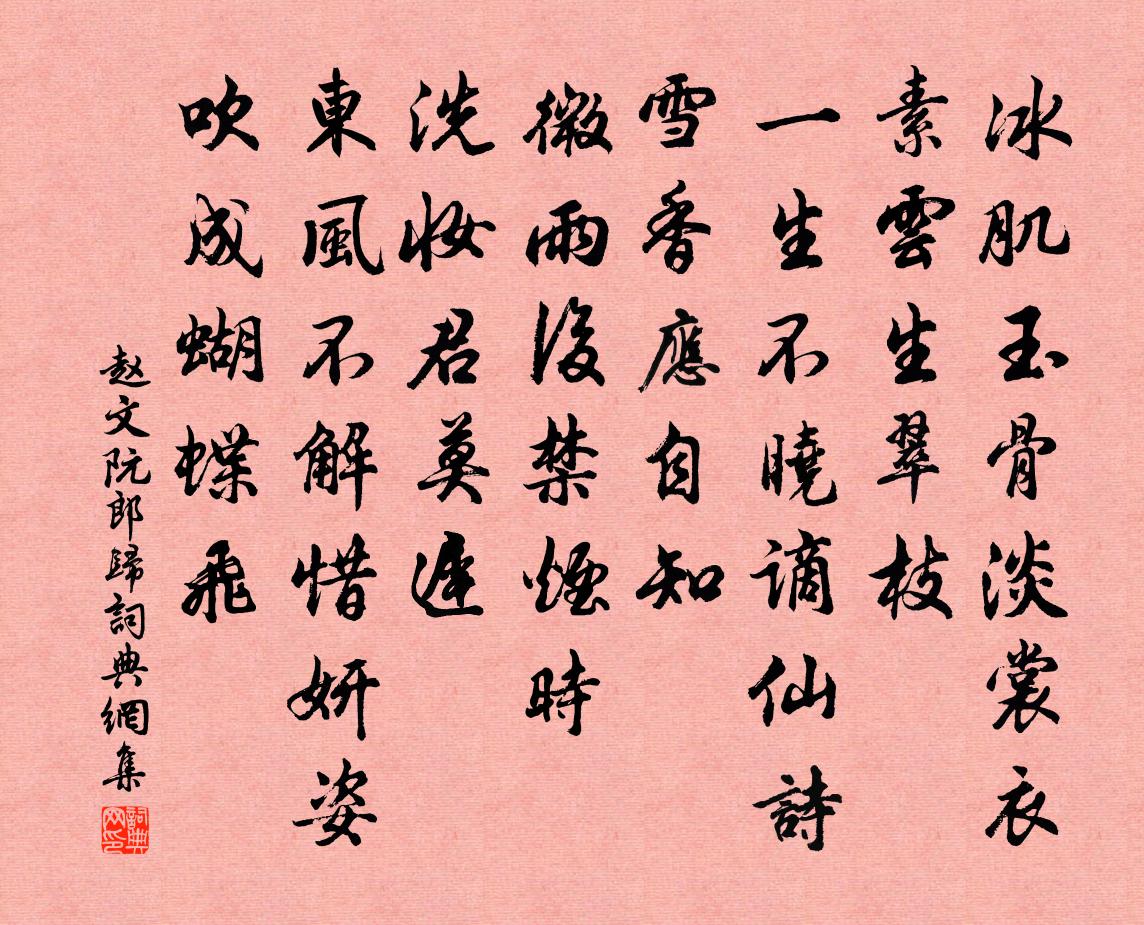 冰肌玉骨淡裳衣
素雲生翠枝
一生不曉謫仙詩
雪香應自知
微雨後禁煙時
洗妝君莫遲
東風不解惜妍姿
吹成蝴蝶飛
赵文阮郎歸詞典網集
詞典网印